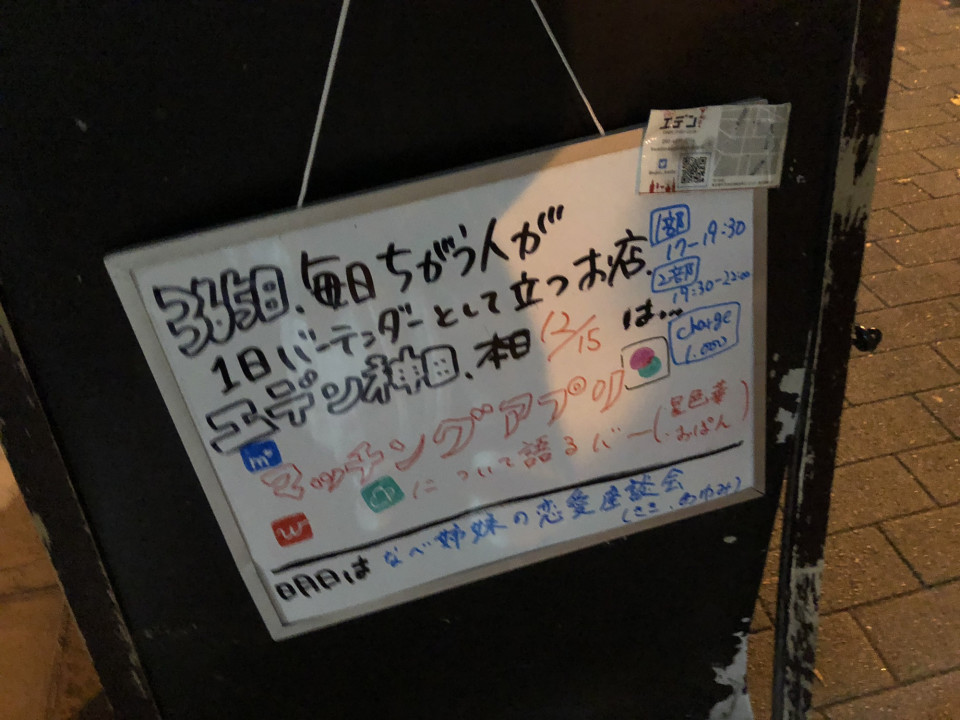 毎日ちがう人が
1日バーテンダーとして立つお店、
エデン神田、本日12/15は…
1部
17-19:30
2部
19:30-22:00
charge
1.000
マッチングアプリ
について語るバー(星邑華
・おぱん)
m
w
明日は なべ姉妹の恋愛座談会
エデン